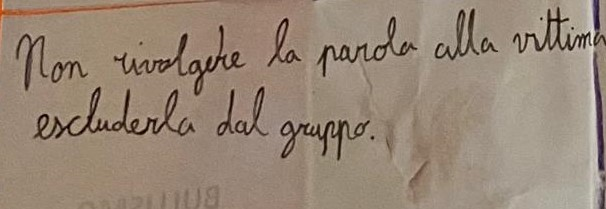 Non rivolgere la parola alla vittima
escluderla dal gruppo.